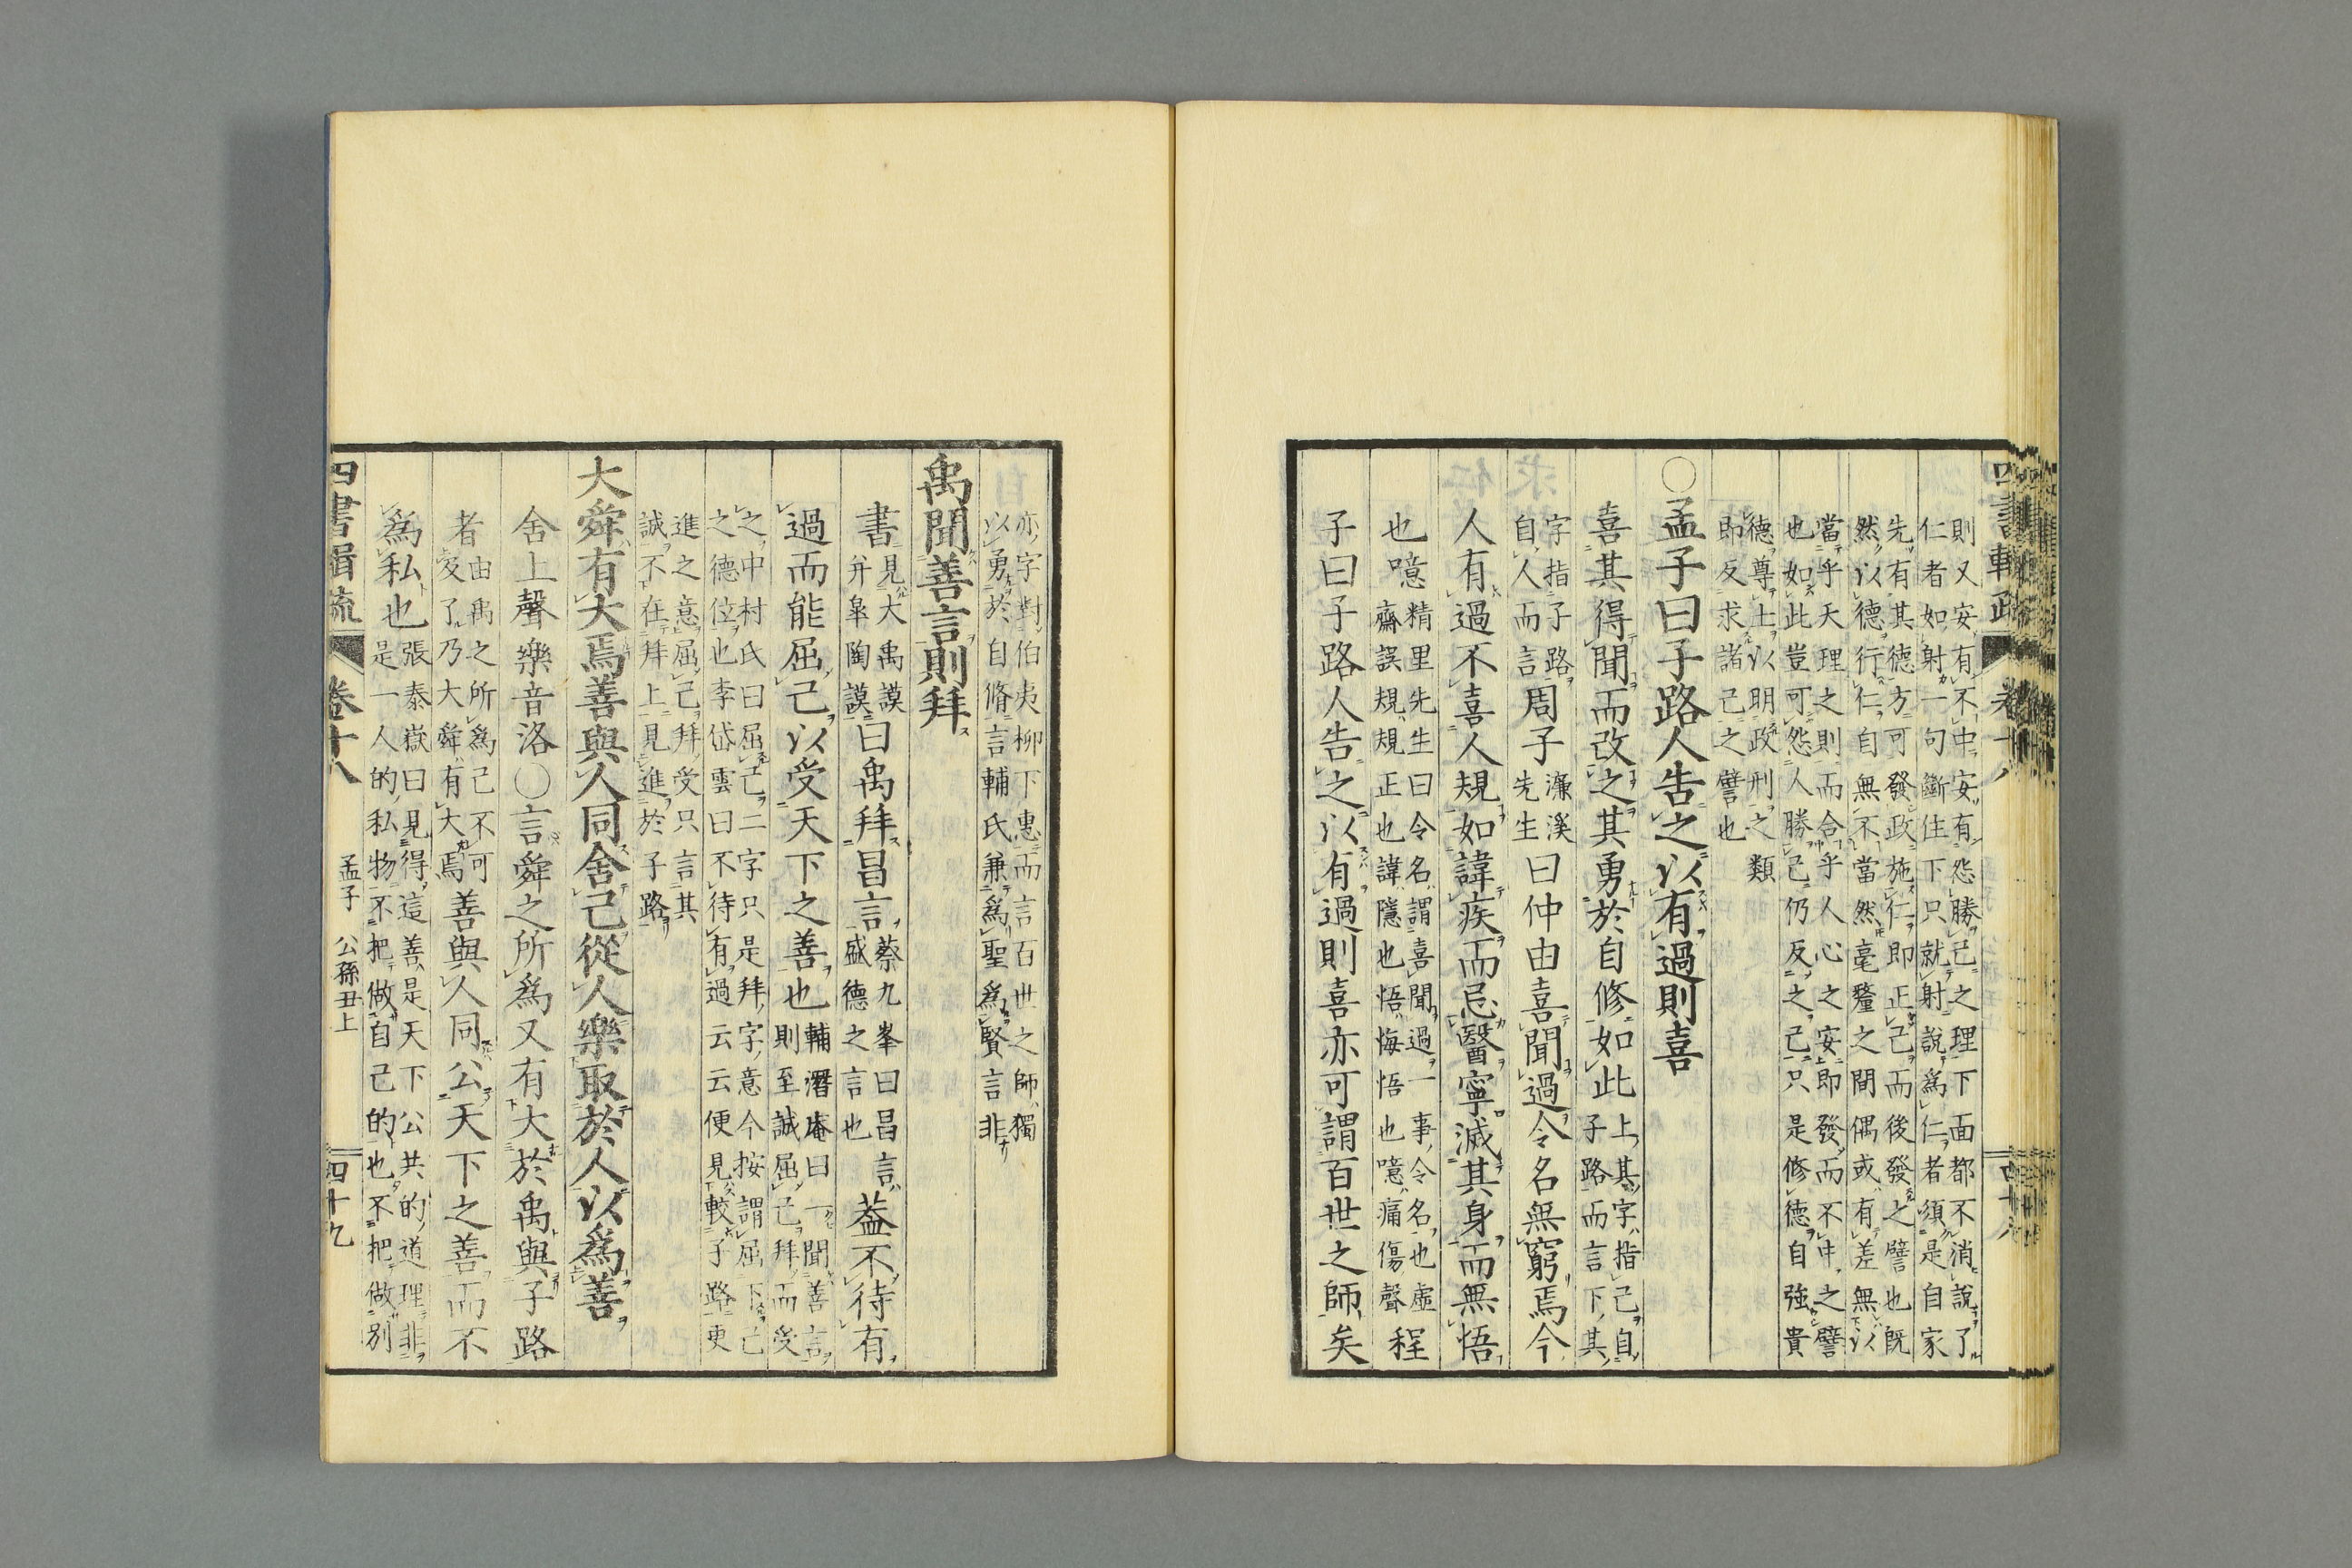 則又安有不中安有怨勝己之理下面都不消說了
仁者如射一句斷住下只就射說爲仁者須是自家
先有其德方可發政施仁即正己而後發之譬也既
然以德行仁自無不當然毫釐之間偶或有差無以
當乎天理之則而合乎人心之安即發而不中之譬
也如此豈可怨人勝己仍反之己只是修德自強貴
德尊士以明政刑之類
即反求諸己之譬也
○孟子曰子路人告之以有過則喜
喜其得聞而改之其勇於自修如此
上其字指己自
子路而言下其
字指子路
自人而言
周子
濂溪
先生
曰仲由喜聞過令名無窮焉今
人有過不喜人規如諱疾而忌醫寧滅其身而無悟
也噫
精里先生曰令名謂喜聞過一事令名也虛
齋誤規規正也諱隱也悟悔悟也噫痛傷聲
程
子曰子路人告之以有過則喜亦可謂百世之師矣
亦字對伯夷柳下惠而言百世之師獨
以勇於自脩言輔氏兼爲聖爲賢言非
禹聞善言則拜
書
見大禹謨
并臯陶謨
曰禹拜昌言
蔡九峯曰昌言
盛德之言也
葢不待有
過而能屈己以受天下之善也
輔潛庵曰一聞善言
則至誠屈己拜而受
之中村氏曰屈己二字只是拜字意今按謂屈下己
之德位也李岱雲曰不待有過云云便見較子路更
進之意屈己拜受只言其
誠不在拜上見進於子路
大舜有大焉善與人同舍己從人樂取於人以爲善
舍上聲樂音洛○言舜之所爲又有大於禹與子路
者
由禹之所爲己不可
及了乃大舜有大焉
善與人同公天下之善而不
爲私也
張泰嶽曰見得這善是天下公共的道理非
是一人的私物不把做自己的也不把做別
四書輯疏
卷十八
孟子 公孫丑上
四十九